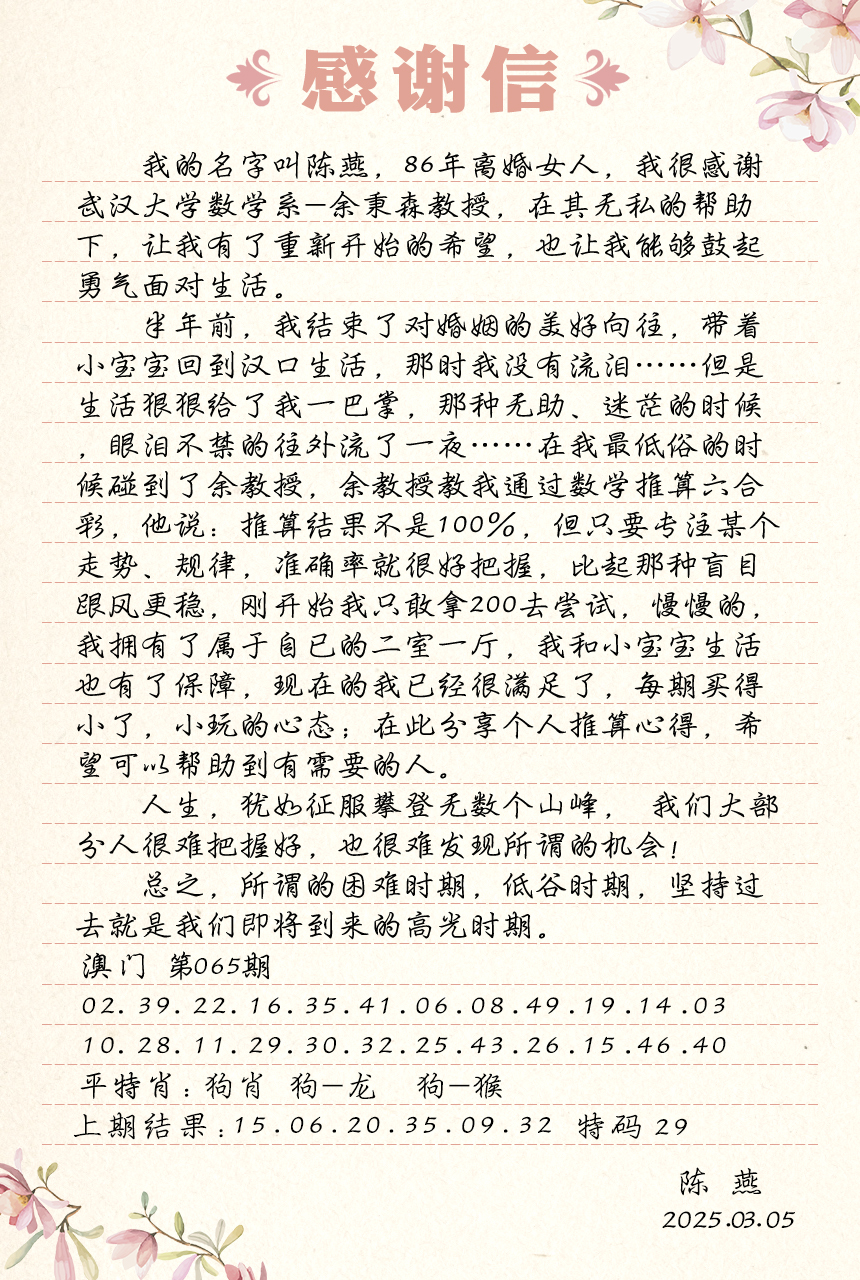 感谢信
我的名字叫陈燕，86年离婚女人，我很感谢
武汉大学数学系—余秉森教授，在其无私的帮助
下，让我有了重新开始的希望，也让我能够鼓起
勇气面对生活。
半年前，我结束了对婚姻的美好向往，带着
小宝宝回到汉口生活，那时我没有流泪……但是
生活狠狠给了我一巴掌，那种无助、迷茫的时候
，眼泪不禁的往外流了一夜……在我最低俗的时
候碰到了余教授，余教授教我通过数学推算六合
彩，他说：推算结果不是100%，但只要专注某个
走势、规律，准确率就很好把握，比起那种盲目
跟风更稳，刚开始我只敢拿200去尝试，慢慢的，
我拥有了属于自已的二室一厅，我和小宝宝生活
也有了保障，现在的我已经很满足了，每期买得
小了，小玩的心态；在此分享个人推算心得，希
望可以帮助到有需要的人。
人生，犹如征服攀登无数个山峰， 我们大部
分人很难把握好，也很难发现所谓的机会！
总之，所谓的困难时期，低谷时期，坚持过
去就是我们即将到来的高光时期。
澳门 第065期
02.39.22.16.35.41.06.08.49.19.14.03
10.28.11.29.30.32.25.43.26.15.46.40
平特肖：狗肖 狗—龙 狗—猴
上期结果：15.06.20.35.09.32 特码 29
陈 燕
2025.03.05